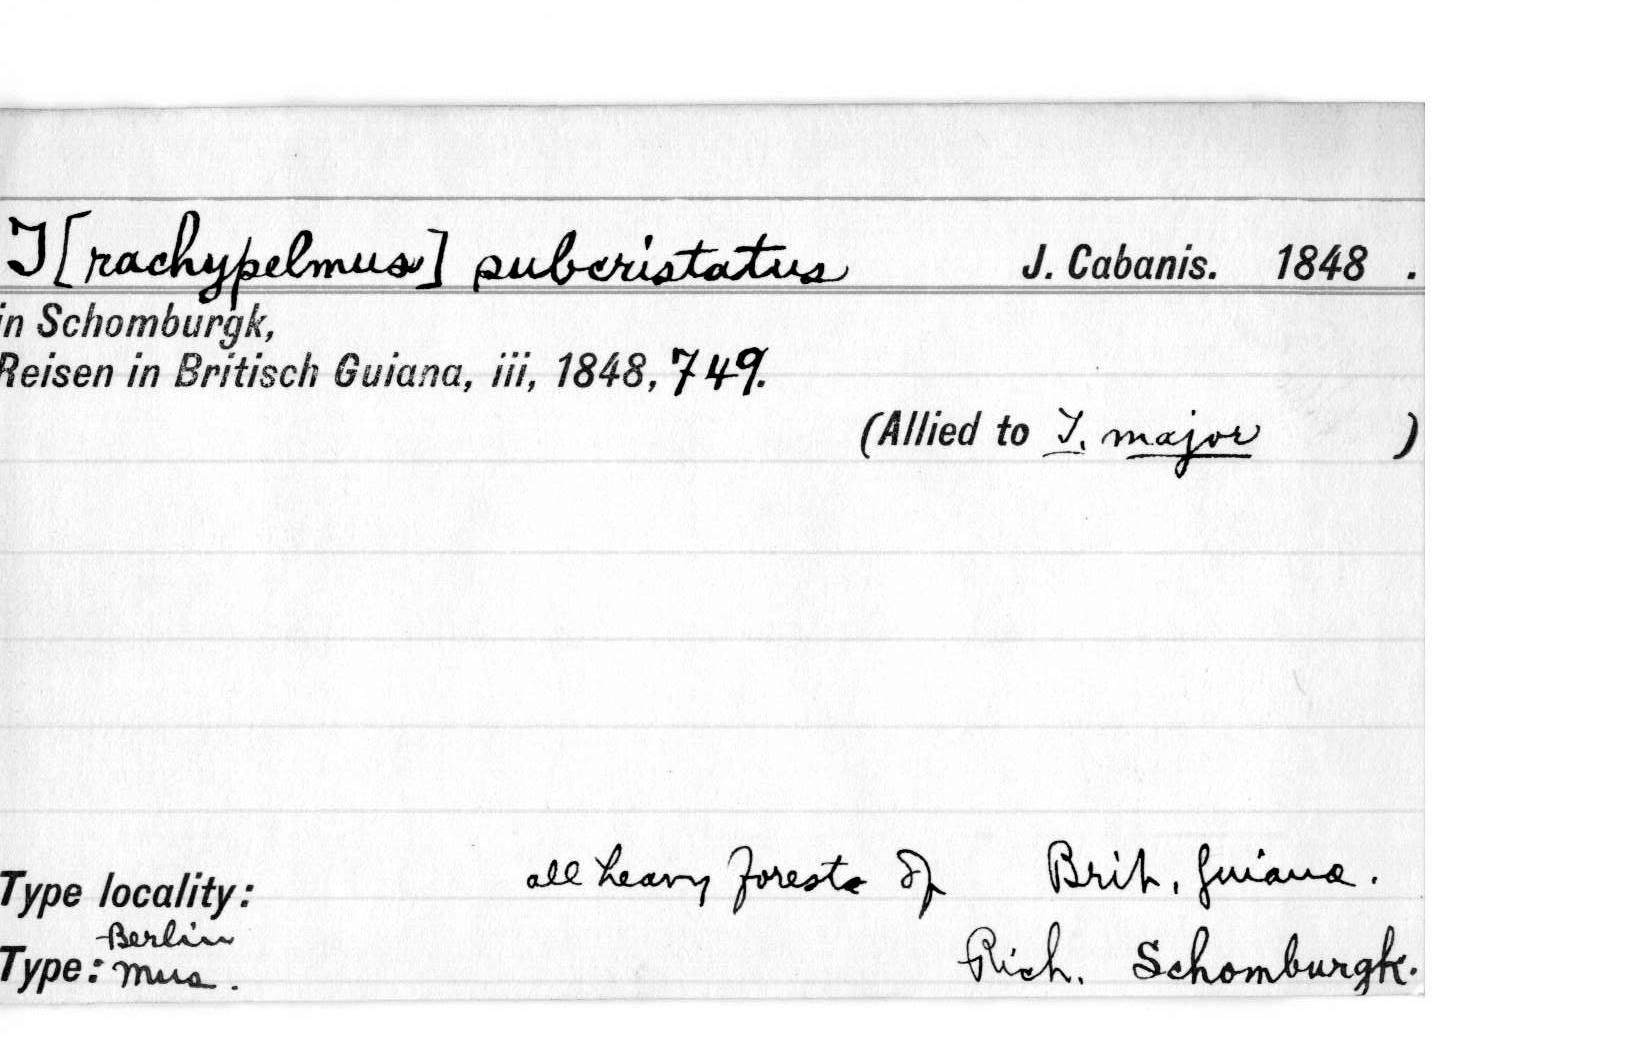 T[rachypelmus] subcristatus J. Cabanis. 1848 .
in Schomburgk,
Reisen in Britisch Guiana, iii, 1848, 749.
(Allied to T. major )
Type locality: all heavy forests of Brit. Guiana.
Berlin
Type: Mus. Rich. Schomburgk.